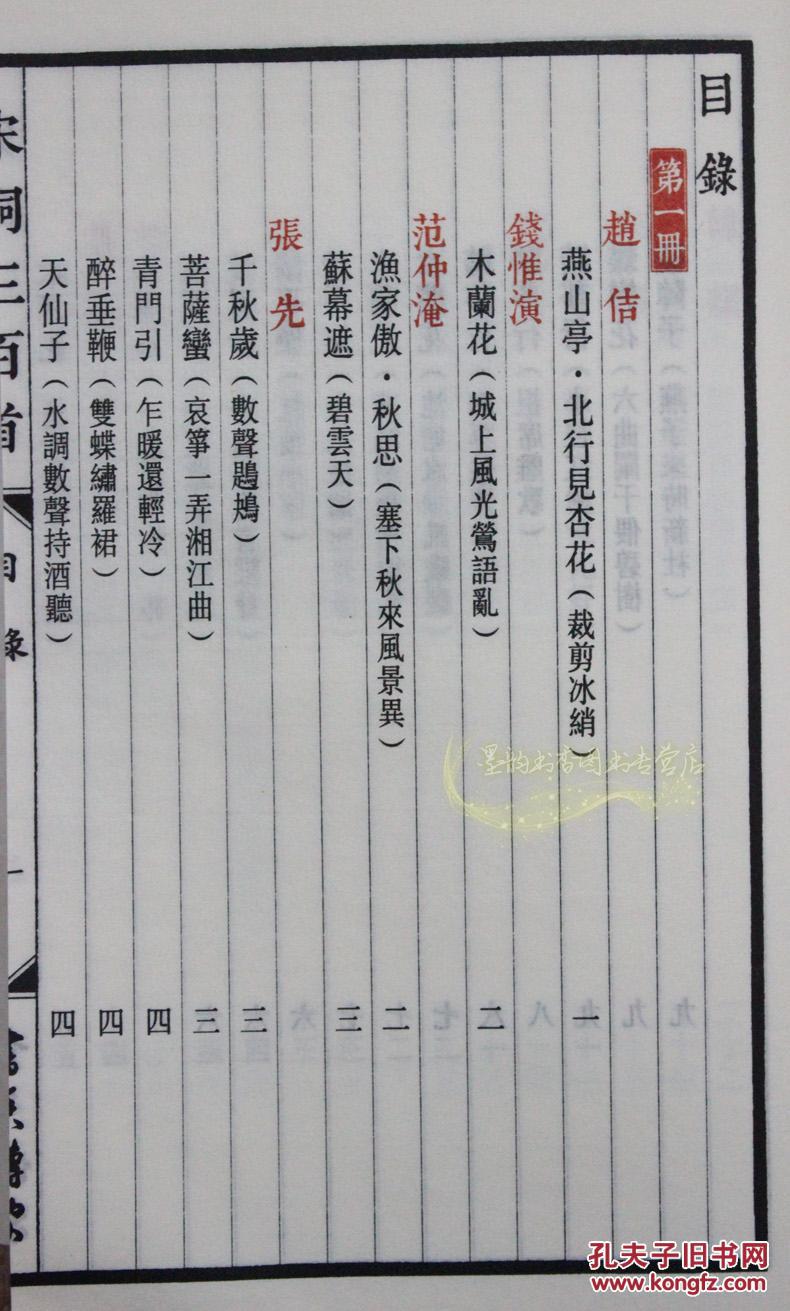 目錄
第一冊
趙佶
燕山亭·北行見杏花（裁剪冰綃） 一
錢惟演
木蘭花（城上風光鶯語亂） 二
范仲淹
漁家傲·秋思（塞下秋來風景異） 二
蘇幕遮（碧雲天） 三
張先
千秋歲（數聲鶗鴂） 三
菩薩蠻（哀箏一弄湘江曲） 三
青門引（乍暖還輕冷） 四
醉垂鞭（雙蝶繡羅裙） 四
天仙子（水調數聲持酒聽） 四
宋詞三百首
目錄
一
墨韵书香图书专营店
孔夫子旧书网
www.kongfz.com